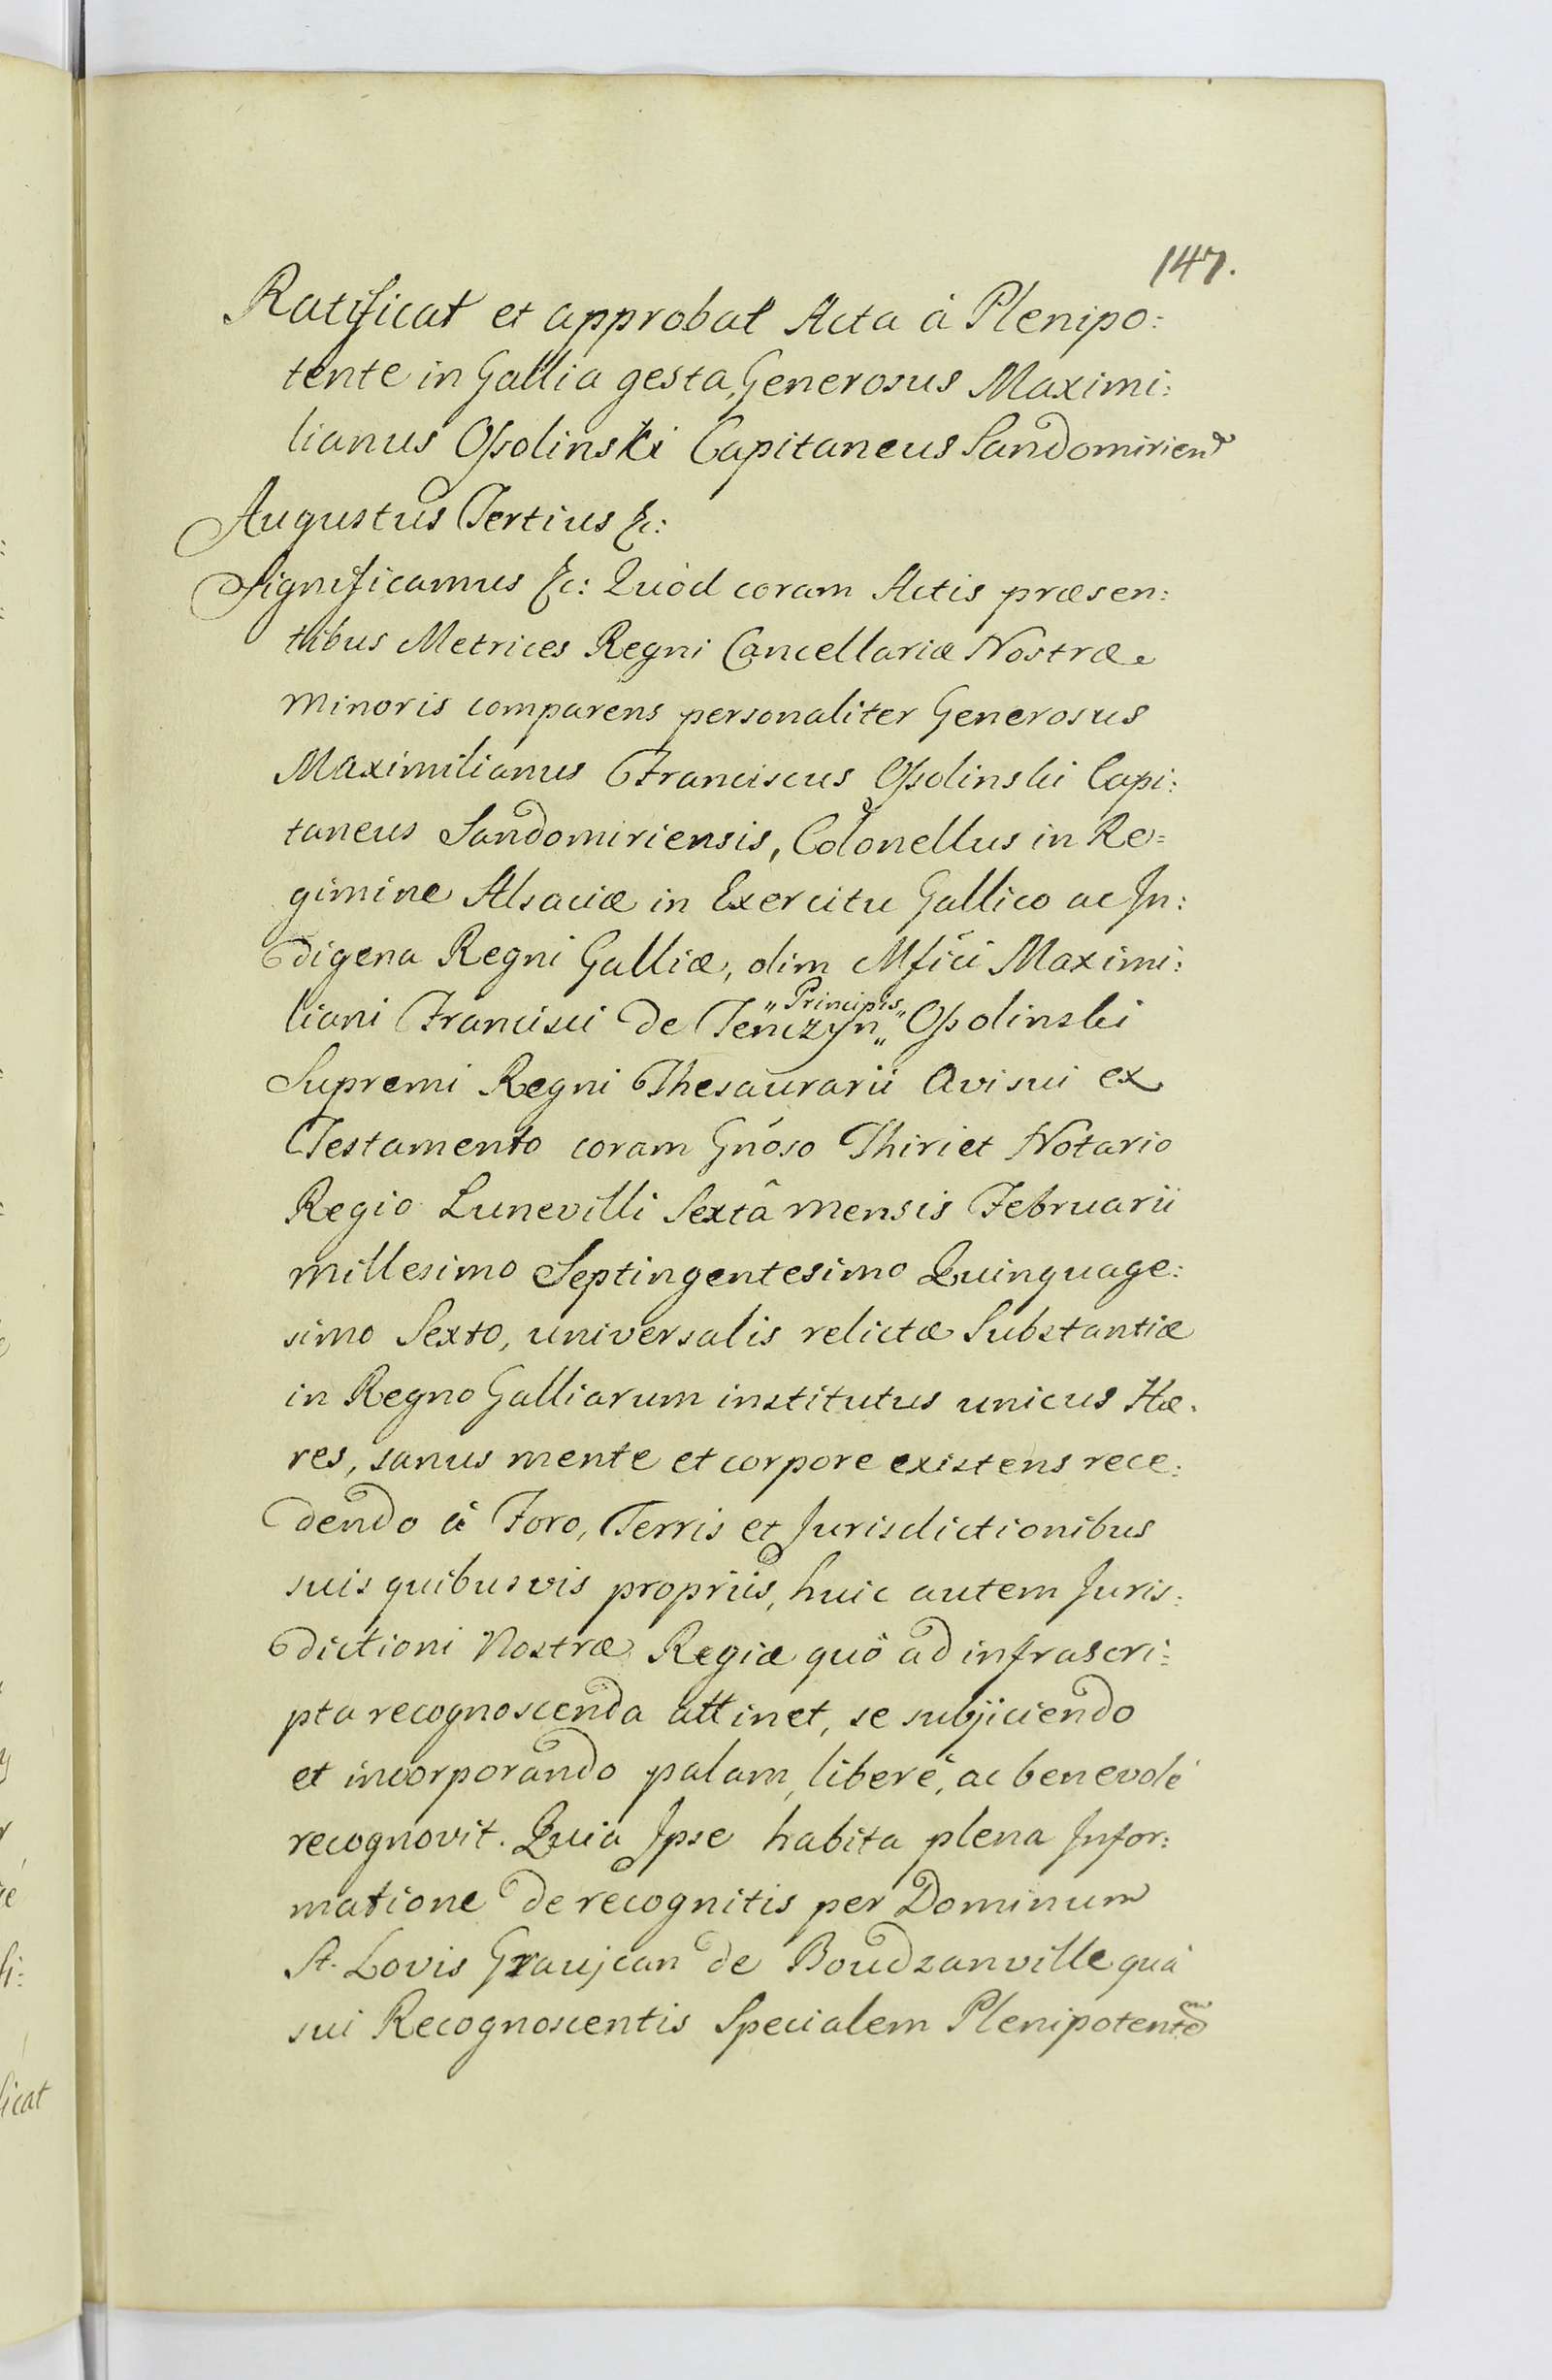 147.
Ratificat et approbat Acta à Plenipo:
tente in Gallia gesta, Generosus Maximi:
lianus Ossolinski Capitaneus Sandomirien
Augustus Tertius &c:
Significamus &c: Quòd coram Actis præsen:
tibus Metrices Regni Cancellariæ Nostræ
minoris comparens personaliter Generosus
Maximilianus Franciscus Ossolinski Capi:
taneus Sandomiriensis, Colonellus in Re=
gimine Alsaciæ in Exercitu Gallico ac In:
digena Regni Galliæ, olim Mfici Maximi:
liani Francisci de Tenczyn „Principis„ Ossolinski
Supremi Regni Thesaurarii Avi sui ex
Testamento coram Gnoso Thiriet Notario
Regio Lunevilli Sextâ mensis Februarii
millesimo Septingentesimo Quinquage:
simo Sexto, universalis relictæ Substantiæ
in Regno Galliarum institutus unicus Hæ.
res, sanus mente et corpore existens rece:
dendo à Foro, Terris et Jurisdictionibus
suis quibusvis propriis, huic autem Juris:
dictioni Nostræ Regiæ quò ad infrascri:
pta recognoscenda attinet, se subjiciendo
et incorporando palam, liberè, ac benevolè
recognovit. Quia Ipse habita plena Infor:
matione de recognitis per Dominum
St. Lovis Graujean de Boudzanville quà
sui Recognoscentis Specialem Plenipotente
icat